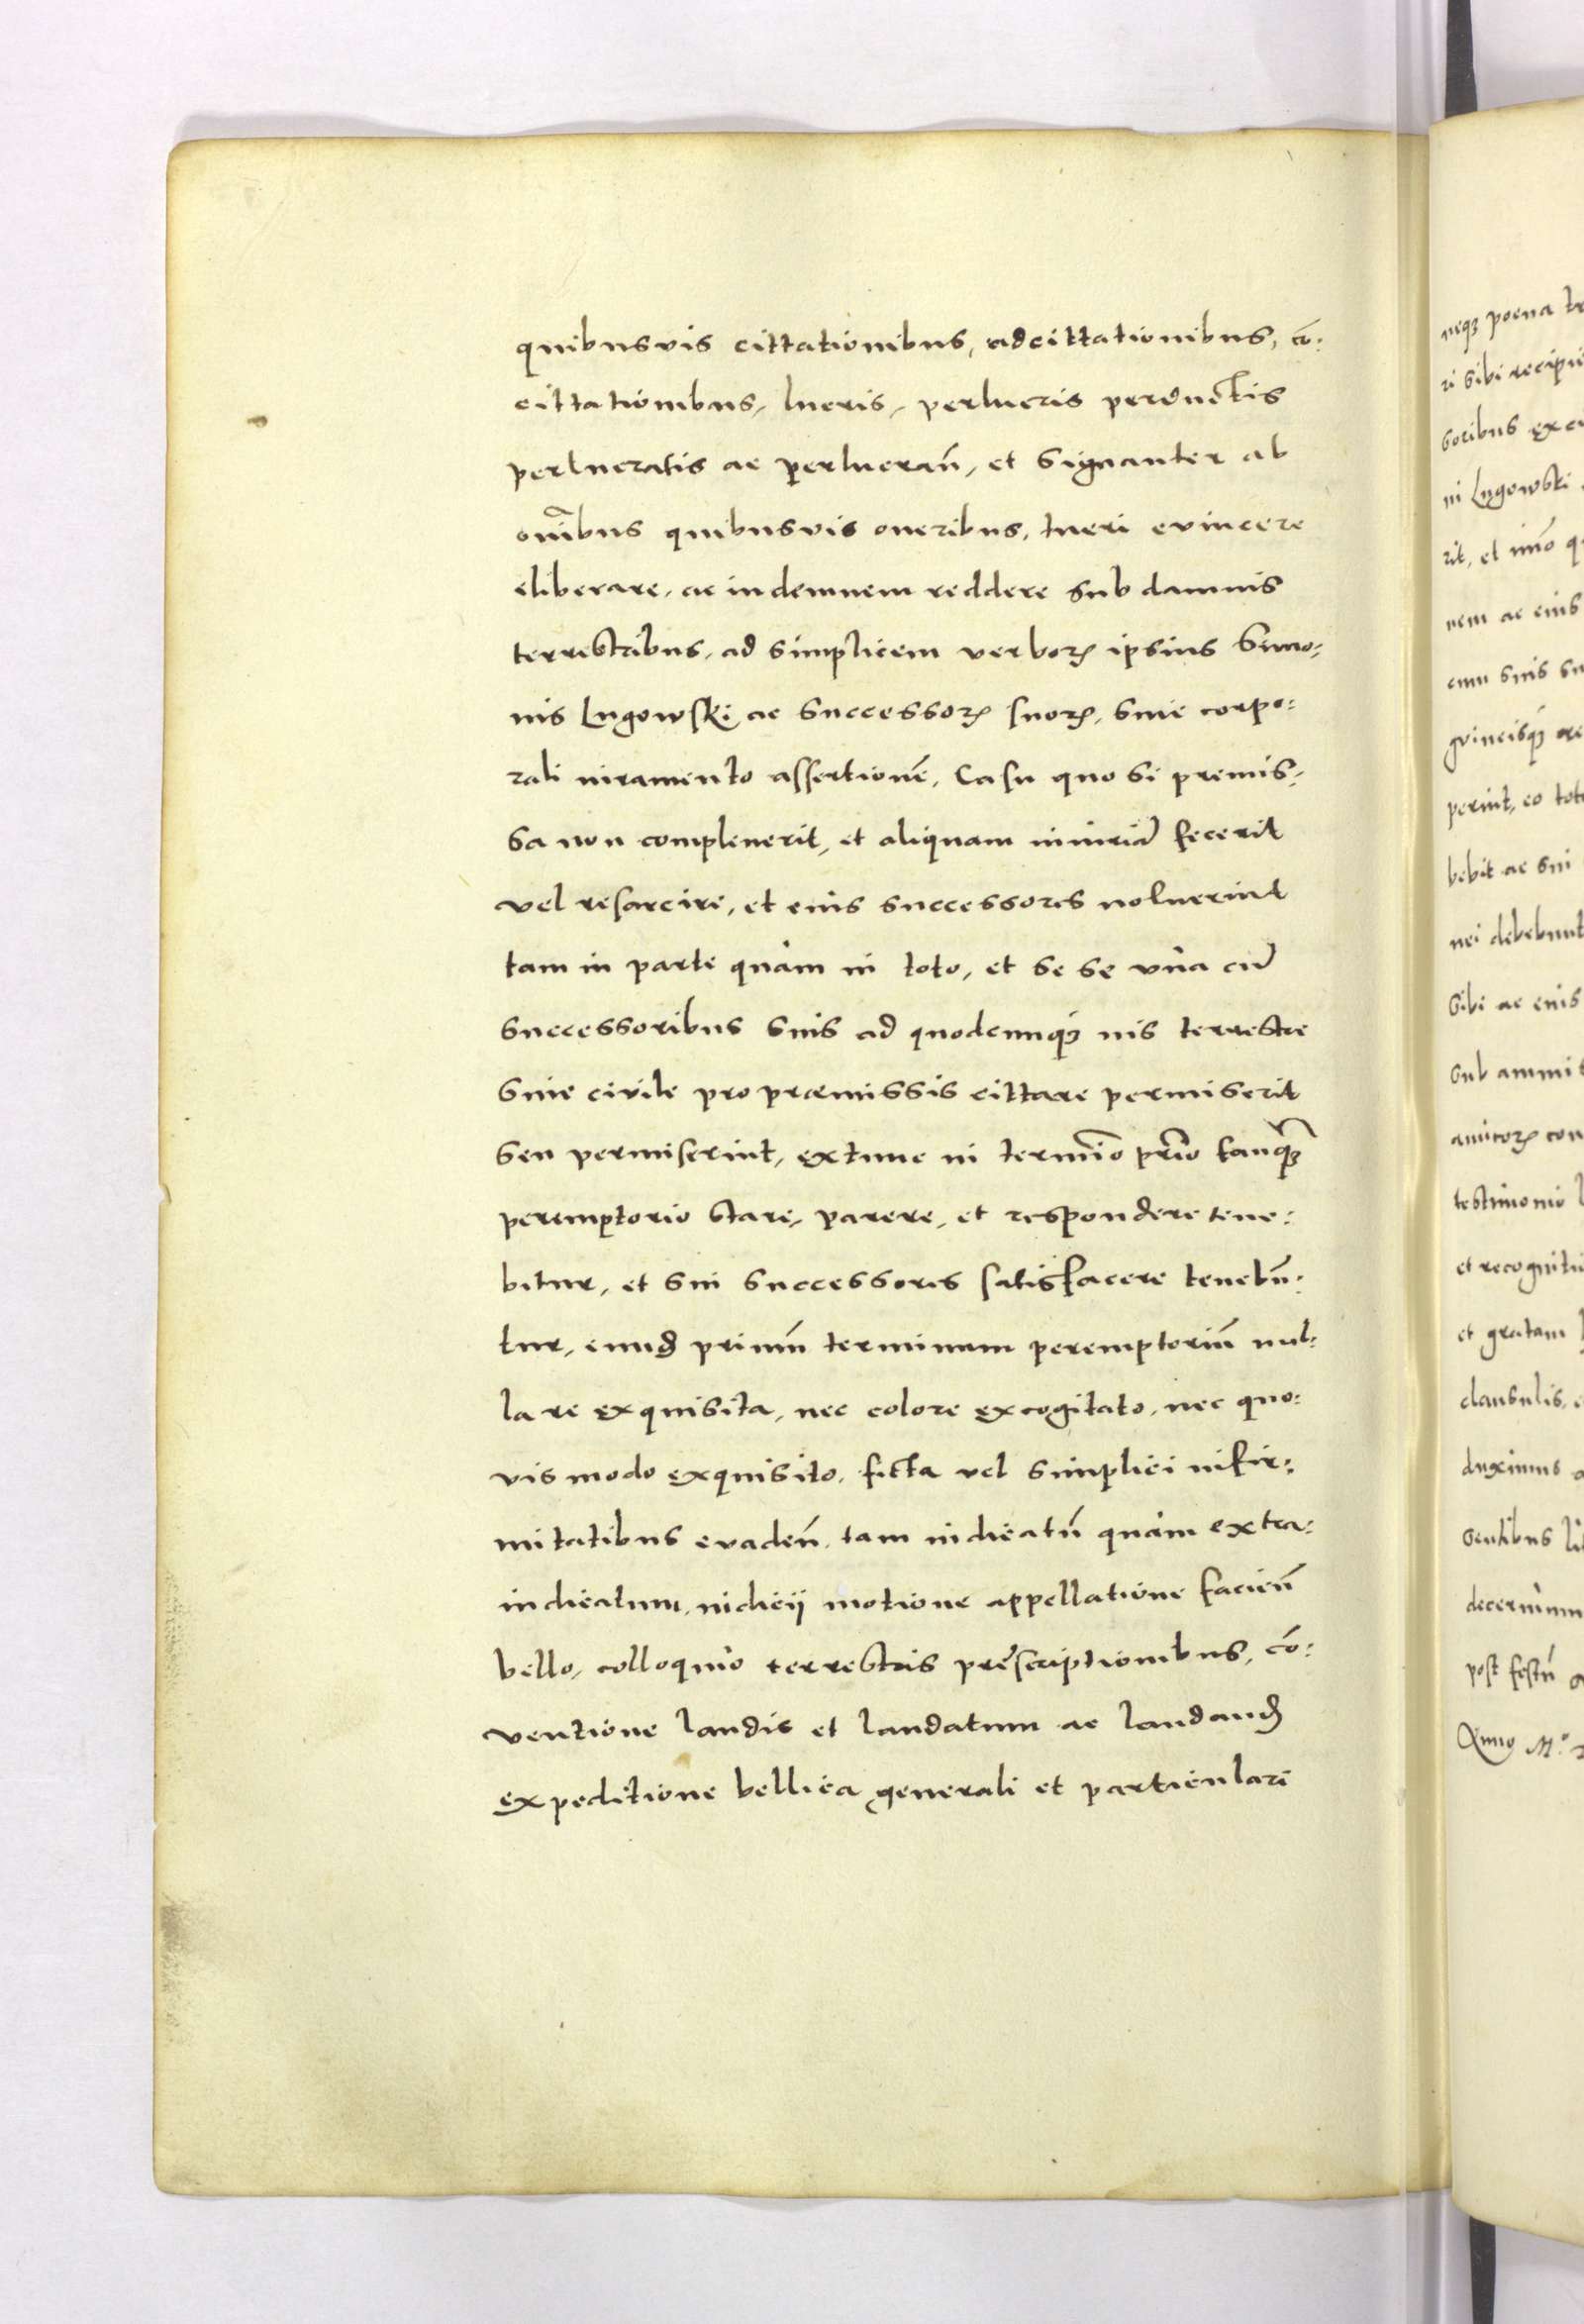 quibusvis cittationibus, adcittationibus, cō:
cittationibus, lucris, perlucris perductis
perlucratis ac perlucrañ, et signanter ab
om̃ibus quibusvis oneribus, tueri evincere
eliberare, ac indemnem reddere sub damnis
terrestribus, ad simplicem verboꝝ ipsius Simo:
nis Lugowski ac successoꝝ suoꝝ, sine corpo:
rali iuramento assertionē. Casu quo si premis:
sa non compleuerit, et aliquam iniuriā fecerit
vel resarcire, et eius successores noluerint
tam in parte quàm in toto, et se se vna cū
successoribus suis ad quodcunqꝫ ius terrestre
siue civile pro præmissis cittare permiserit
seu permiserint, extunc in termĩo prĩo tanqꝫ
peremptorio stare, parere, et respondere tene:
bitur, et sui successores satisfacere tenebũ:
tur, eund primũ terminum peremptoriũ nul:
la re exquisita, nec colore excogitato, nec quo:
vis modo exquisito, ficta vel simplici infir:
mitatibus evadeñ, tam indicatũ quàm extra:
indicatum, indicij motione appellatione facieñ
bello, colloquio terrestris prescriptionibus, cō:
ventione laudis et laudatum ac laudand
expeditione bellica generali et particulari
neqꝫ poena
ri sibi recipi
soribus
ni Lugowski
rit, et im̃o
nem ac eius
cum suis
perint, eo
bebit ac sui
nei debebunt
sibi ac eius
sub ammi
amicoꝝ con
testimonio
et recogniti
et gratam
clausulis,
duximus
sentibus
decernimu
post festũ
Anno M.º